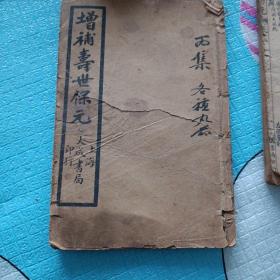 增補壽世保元
上海
大成書局
印行
丙集 各種丸